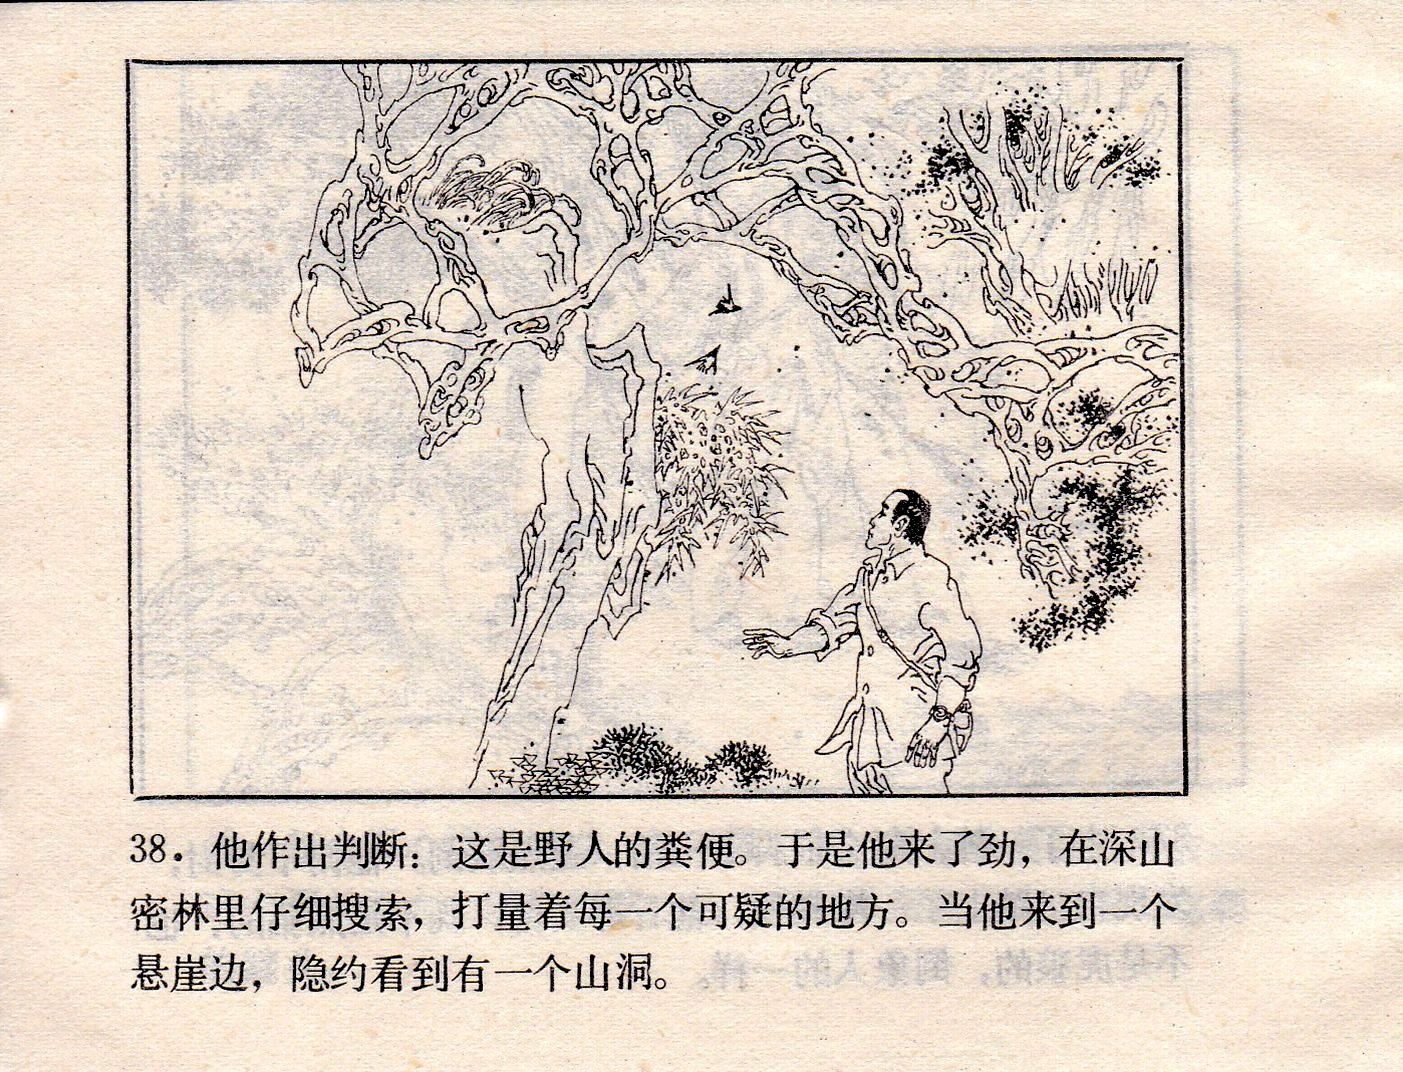 38．他作出判断：这是野人的粪便。于是他来了劲，在深山
密林里仔细搜索，打量着每一个可疑的地方。当他来到一个
悬崖边，隐约看到有一个山洞。